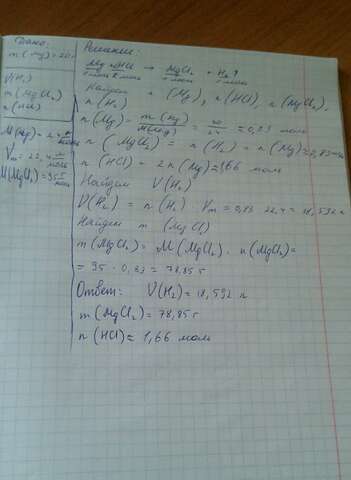 Дано:
m(Mg)=20г
V(H₂)
m(MgCl₂)
n(HCl)
M(Mg)=24 г/моль
Vm=22,4 л/моль
M(MgCl₂)=95 г/моль
Решение:
Mg + 2HCl → MgCl₂ + H₂↑
1 моль 2 моль 1 моль 1 моль
Найдем n(Mg), n(HCl), n(MgCl₂),
n(H₂)
n(Mg) = m(Mg)/M(Mg) = 20/24 ≈ 0,83 моль
n(MgCl₂) = n(H₂) = n(Mg) ≈ 0,83 моль
n(HCl) = 2n(Mg) ≈ 1,66 моль
Найдем V(H₂)
V(H₂) = n(H₂) · Vm = 0,83 · 22,4 = 18,592 л
Найдем m(MgCl)
m(MgCl₂) = M(MgCl₂) · n(MgCl₂) =
= 95 · 0,83 = 78,85 г
Ответ: V(H₂) = 18,592 л
m(MgCl₂) = 78,85 г
n(HCl) ≈ 1,66 моль